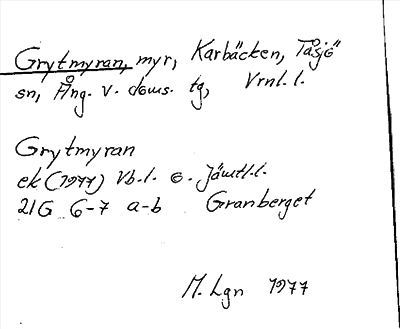 Grytmyran, myr, Karbäcken, Tåsjö
sn, Ång. v. doms. tg, Vrnl. l.
Grytmyran
ek (1977) Vb. l. o. Jämtl. l.
21G 6-7 a-b Granberget
M. Lgn 1977